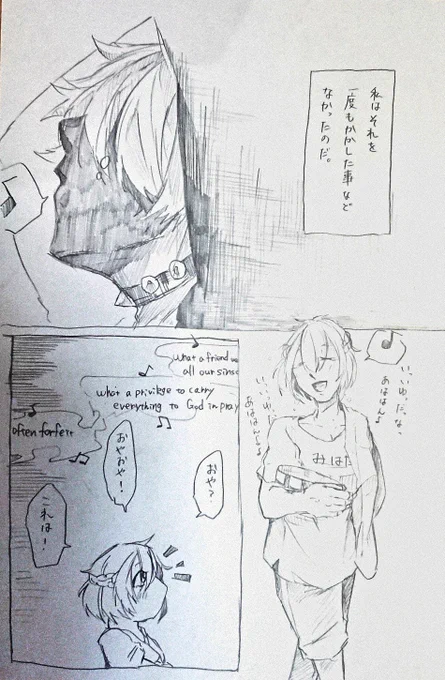 私はそれを
一度もかかした事など
なかったのだ。
い、いゆ、だ、な、
あははん♪
い、いゆ、だ、な、
あははんよ
みはた
what a friend we
all our sins
what a privilege to carry
everything to God in pray
often forfeit
おや?
おやおや!
これは!